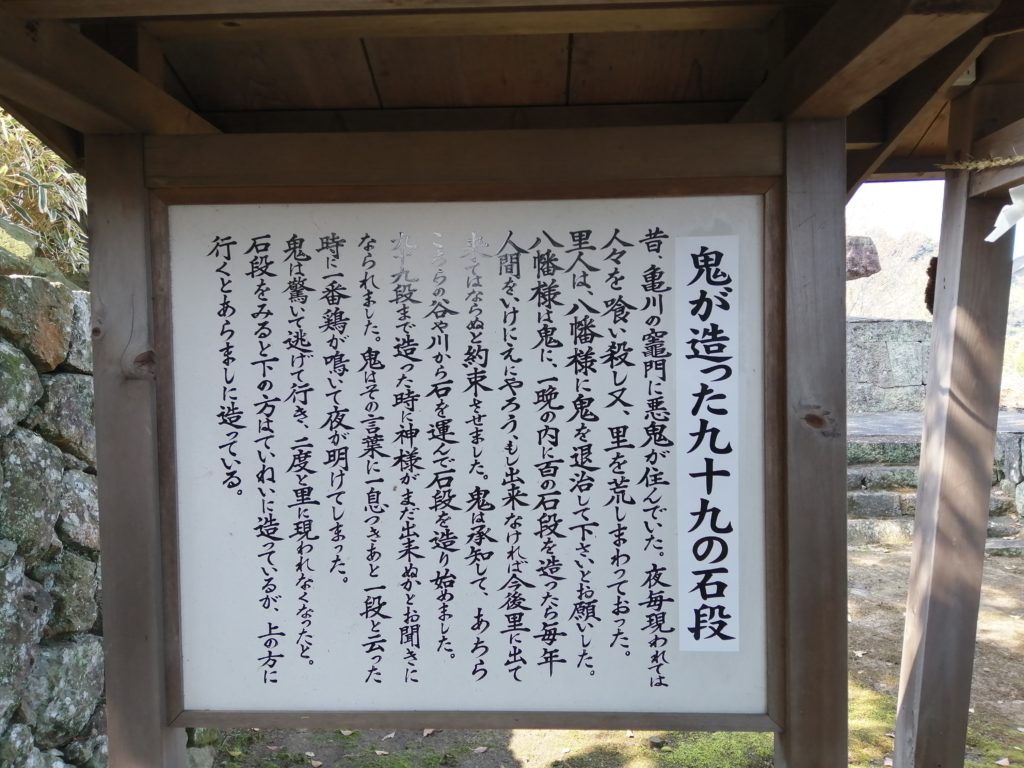 鬼が造った九十九の石段
昔、亀川の竈門に悪鬼が住んでいた。夜毎現われては
人々を喰い殺し又、里を荒しまわっておった。
里人は、八幡様に鬼を退治して下さいとお願いした。
八幡様は鬼に、一晩の内に百の石段を造ったら毎年
人間をいけにえにやろう、もし出来なければ今後里に出て
来てはならぬと約束させました。鬼は承知して、あちら
こちらの谷や川から石を運んで石段を造り始めました。
九十九段まで造った時に神様がまだ出来ぬかとお聞きに
なられました。鬼はその言葉に一息つきあと一段と云った
時に一番鶏が鳴いて夜が明けてしまった。
鬼は驚いて逃げて行き、二度と里に現われなくなったと。
石段をみると下の方はていねいに造っているが、上の方に
行くとあらましに造っている。